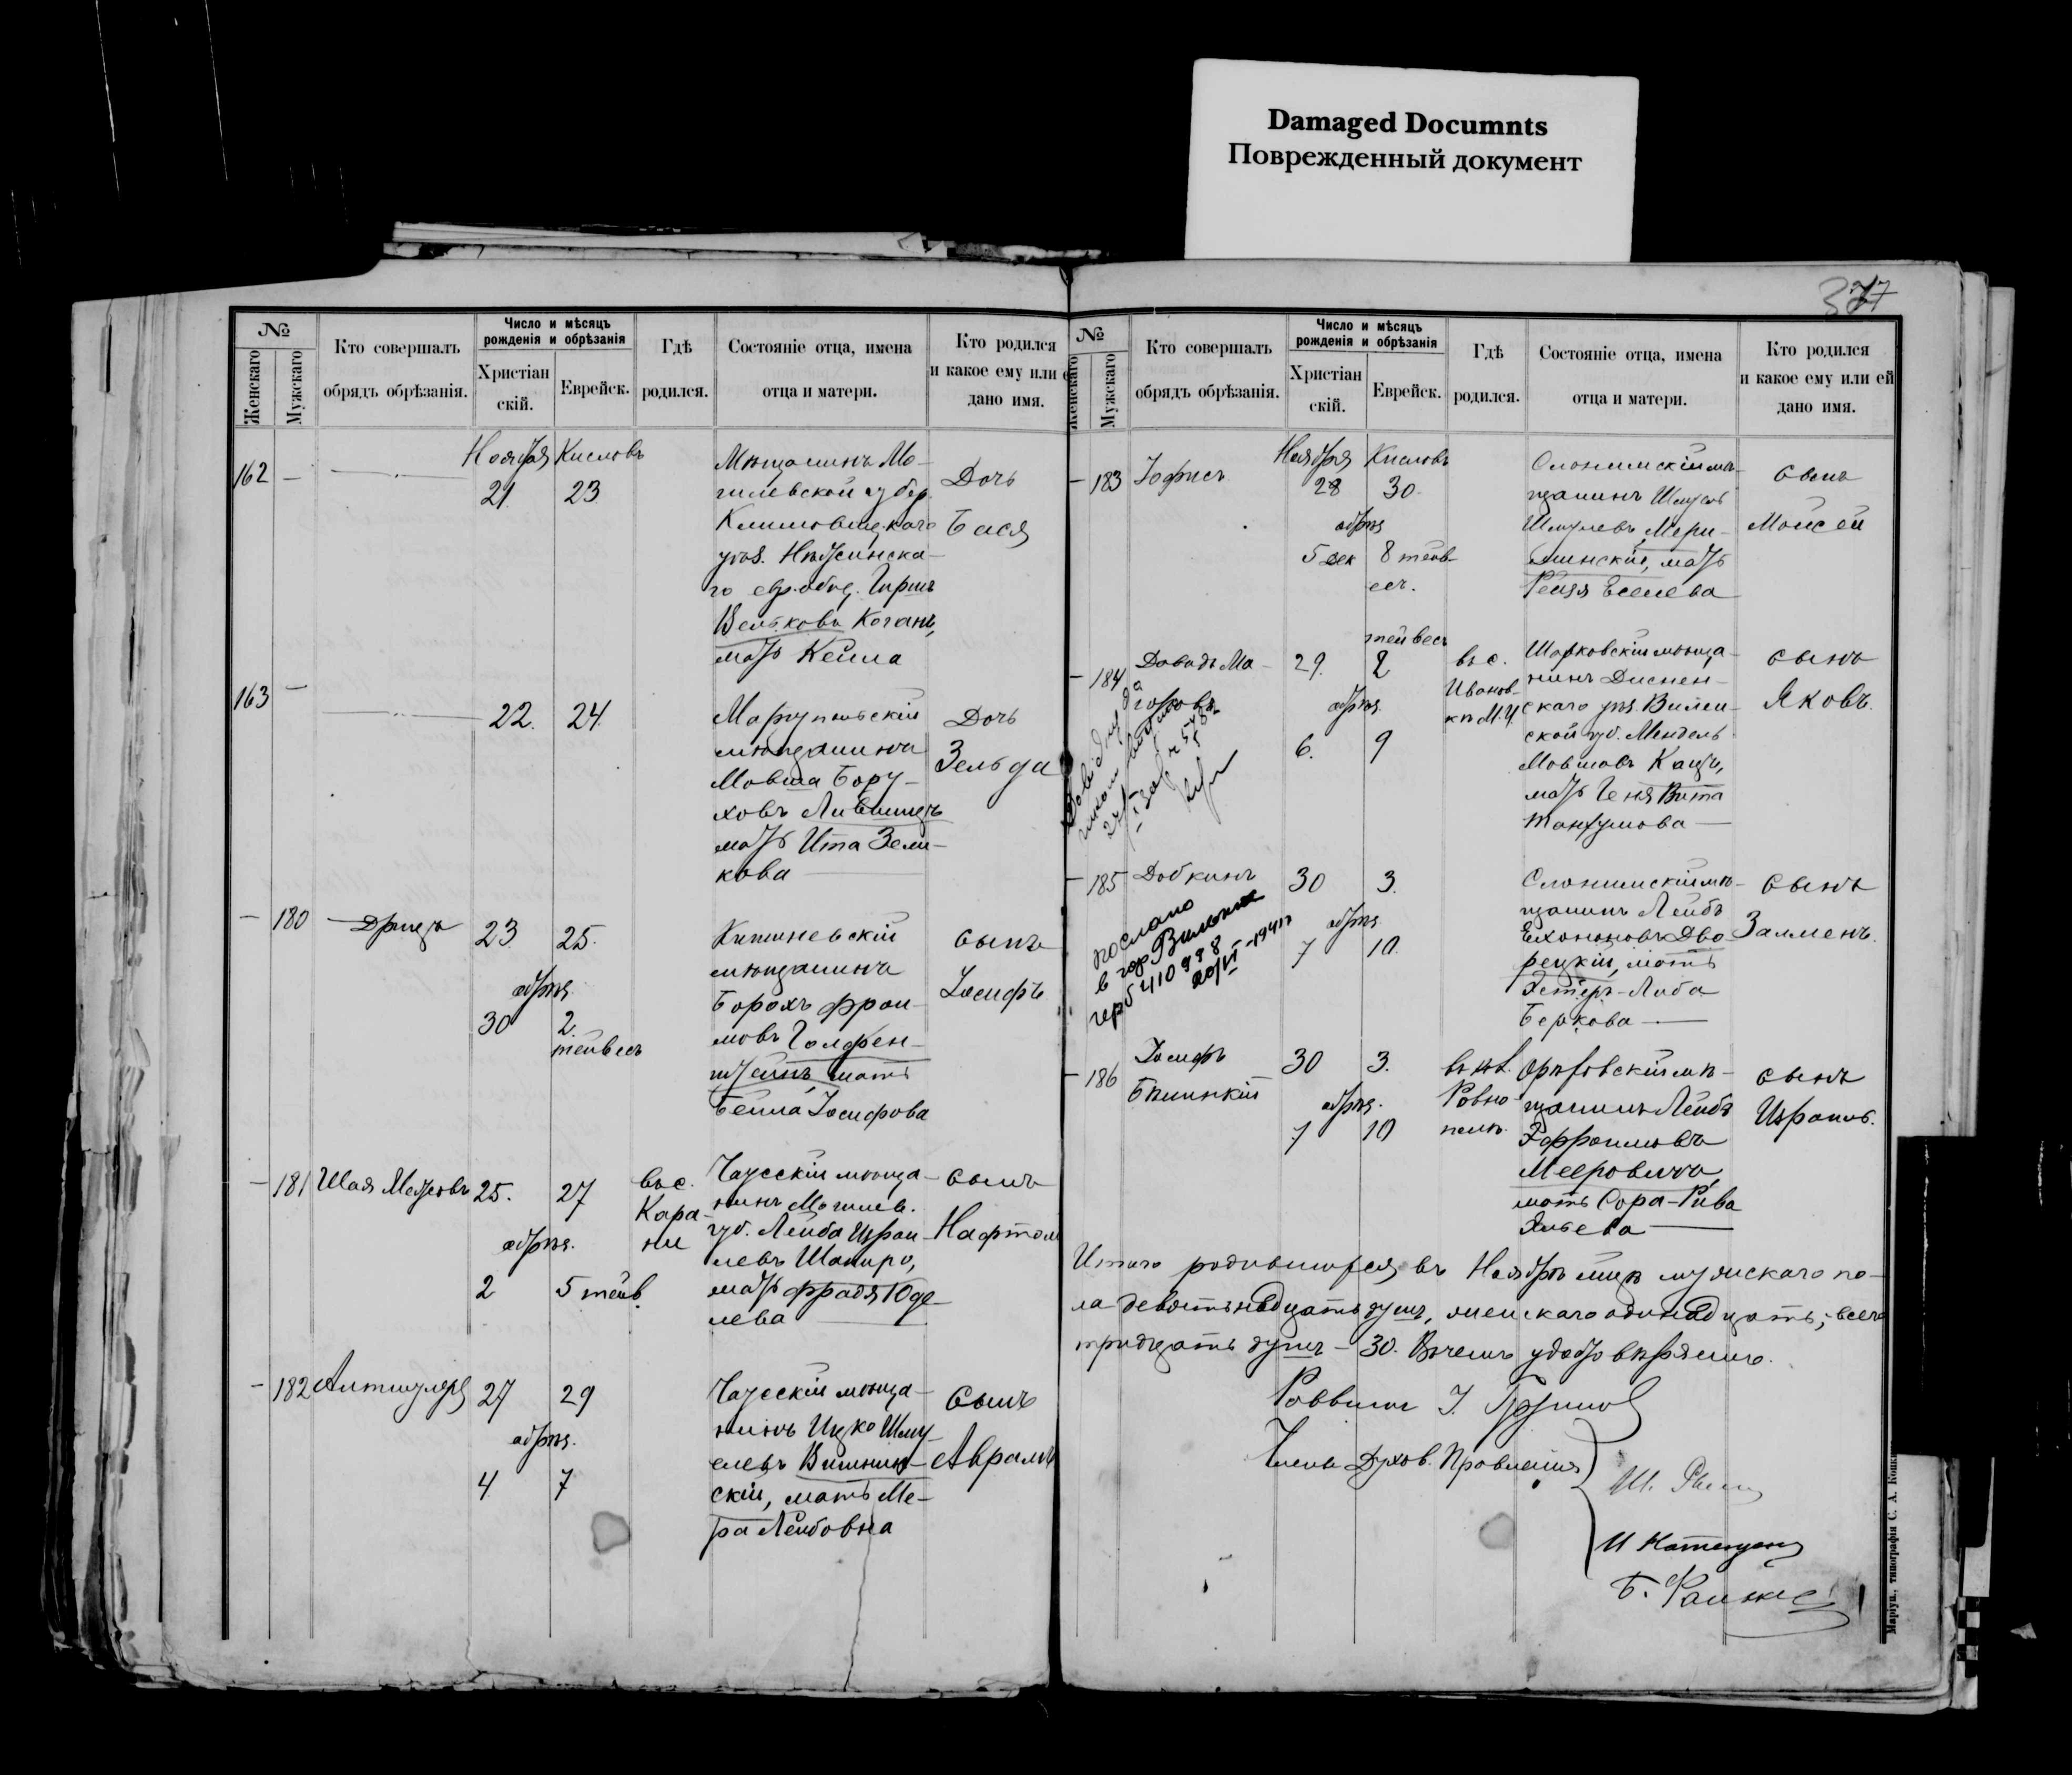 Damaged Documnts
Поврежденный документ
377
№
Женскаго
Мужскаго
Кто совершалъ
обрядъ обрѣзанія.
Число и мѣсяцъ
рожденія и обрѣзанія
Христіан
скій.
Еврейск.
Гдѣ
родился.
Состояніе отца, имена
отца и матери.
Кто родился
и какое ему или е
дано имя.
Ноября Кисловъ
162 —
21 23
Мѣщанинъ Мо-
гилевской губер.
Климовецкаго
уѣз.
го евр. общ. Гиршъ
Вельковъ Коганъ,
мать Кейла
Дочь
Бася
163 —
22. 24
Маріупольскій
мѣщанинъ
Мовша Бору-
ховъ Лившицъ
мать Ита Зели-
кова
Дочь
Зельда
— 180
Дрицъ
23 25.
обрѣз.
30 2.
тейвесъ
Кишиневскій
мѣщанинъ
Борохъ Фрои-
мовъ Голфен-
штейнъ, мать
Бейла Іосифова
сынъ
Іосифъ
— 181
Шая
25. 27
обрѣз.
2 5 тейв.
въ с.
Кара-
ни
Чаусскій мѣща-
нинъ Могилев.
губ. Лейба Израи-
левъ Шапиро,
мать Фрадя Юде-
лева
сынъ
Нафтоли
— 182
Альтшулеръ
27 29
обрѣз.
4 7
Чаусскій мѣща-
нинъ Ицко Шму-
елевъ Вишнин-
скій, мать Ме-
ра Лейбовна
Сынъ
Аврамъ
№
Женскаго
Мужскаго
Кто совершалъ
обрядъ обрѣзанія.
Число и мѣсяцъ
рожденія и обрѣзанія
Христіан
скій.
Еврейск.
Гдѣ
родился.
Состояніе отца, имена
отца и матери.
Кто родился
и какое ему или ей
дано имя.
Ноября Кисловъ
— 183
Іофисъ
28 30.
обрѣз
5 дек 8 тейв-
есъ.
Слонимскій мѣ-
щанинъ Шмуель
Шмулевъ Мери-
минскій, мать
Рейзя Еселева
сынъ
Мойсей
тейвесъ
— 184
Довидъ Ма-
29. 2
обрѣз.
6. 9
въ с.
Иванов-
кѣ М.У.
Шарковскій мѣща-
нинъ Диснен-
скаго уѣз Вилен-
ской губ. Мендель
Мовшовъ Кацъ,
мать Геня Вита
Танхумова —
сынъ
Яковъ.
— 185
Добкинъ
30 3.
обрѣз.
7 10.
послано
в гор
1941
Слонимскій мѣ-
щанинъ Лейбъ
Ехононовъ Дво-
рецкій, мать
Эстеръ-Либа
Беркова —
сынъ
Залменъ.
— 186
Іосифъ
Бѣлинкій
30 3.
обрѣз.
7 10
Ровно-
полѣ.
Орѣховскій мѣ-
щанинъ Лейбъ
Эфроимовъ
Мееровичъ,
мать Сора-Рива
сынъ
Израиль.
Итого родившихся въ Ноябрѣ мцѣ мужскаго по-
ла девятнадцать душъ, женскаго одинадцать; всего
тридцать душъ — 30. Въ чемъ удостовѣряемъ.
Раввинъ
Члены Духов. Правленія
Маріуп. типографія С. А.